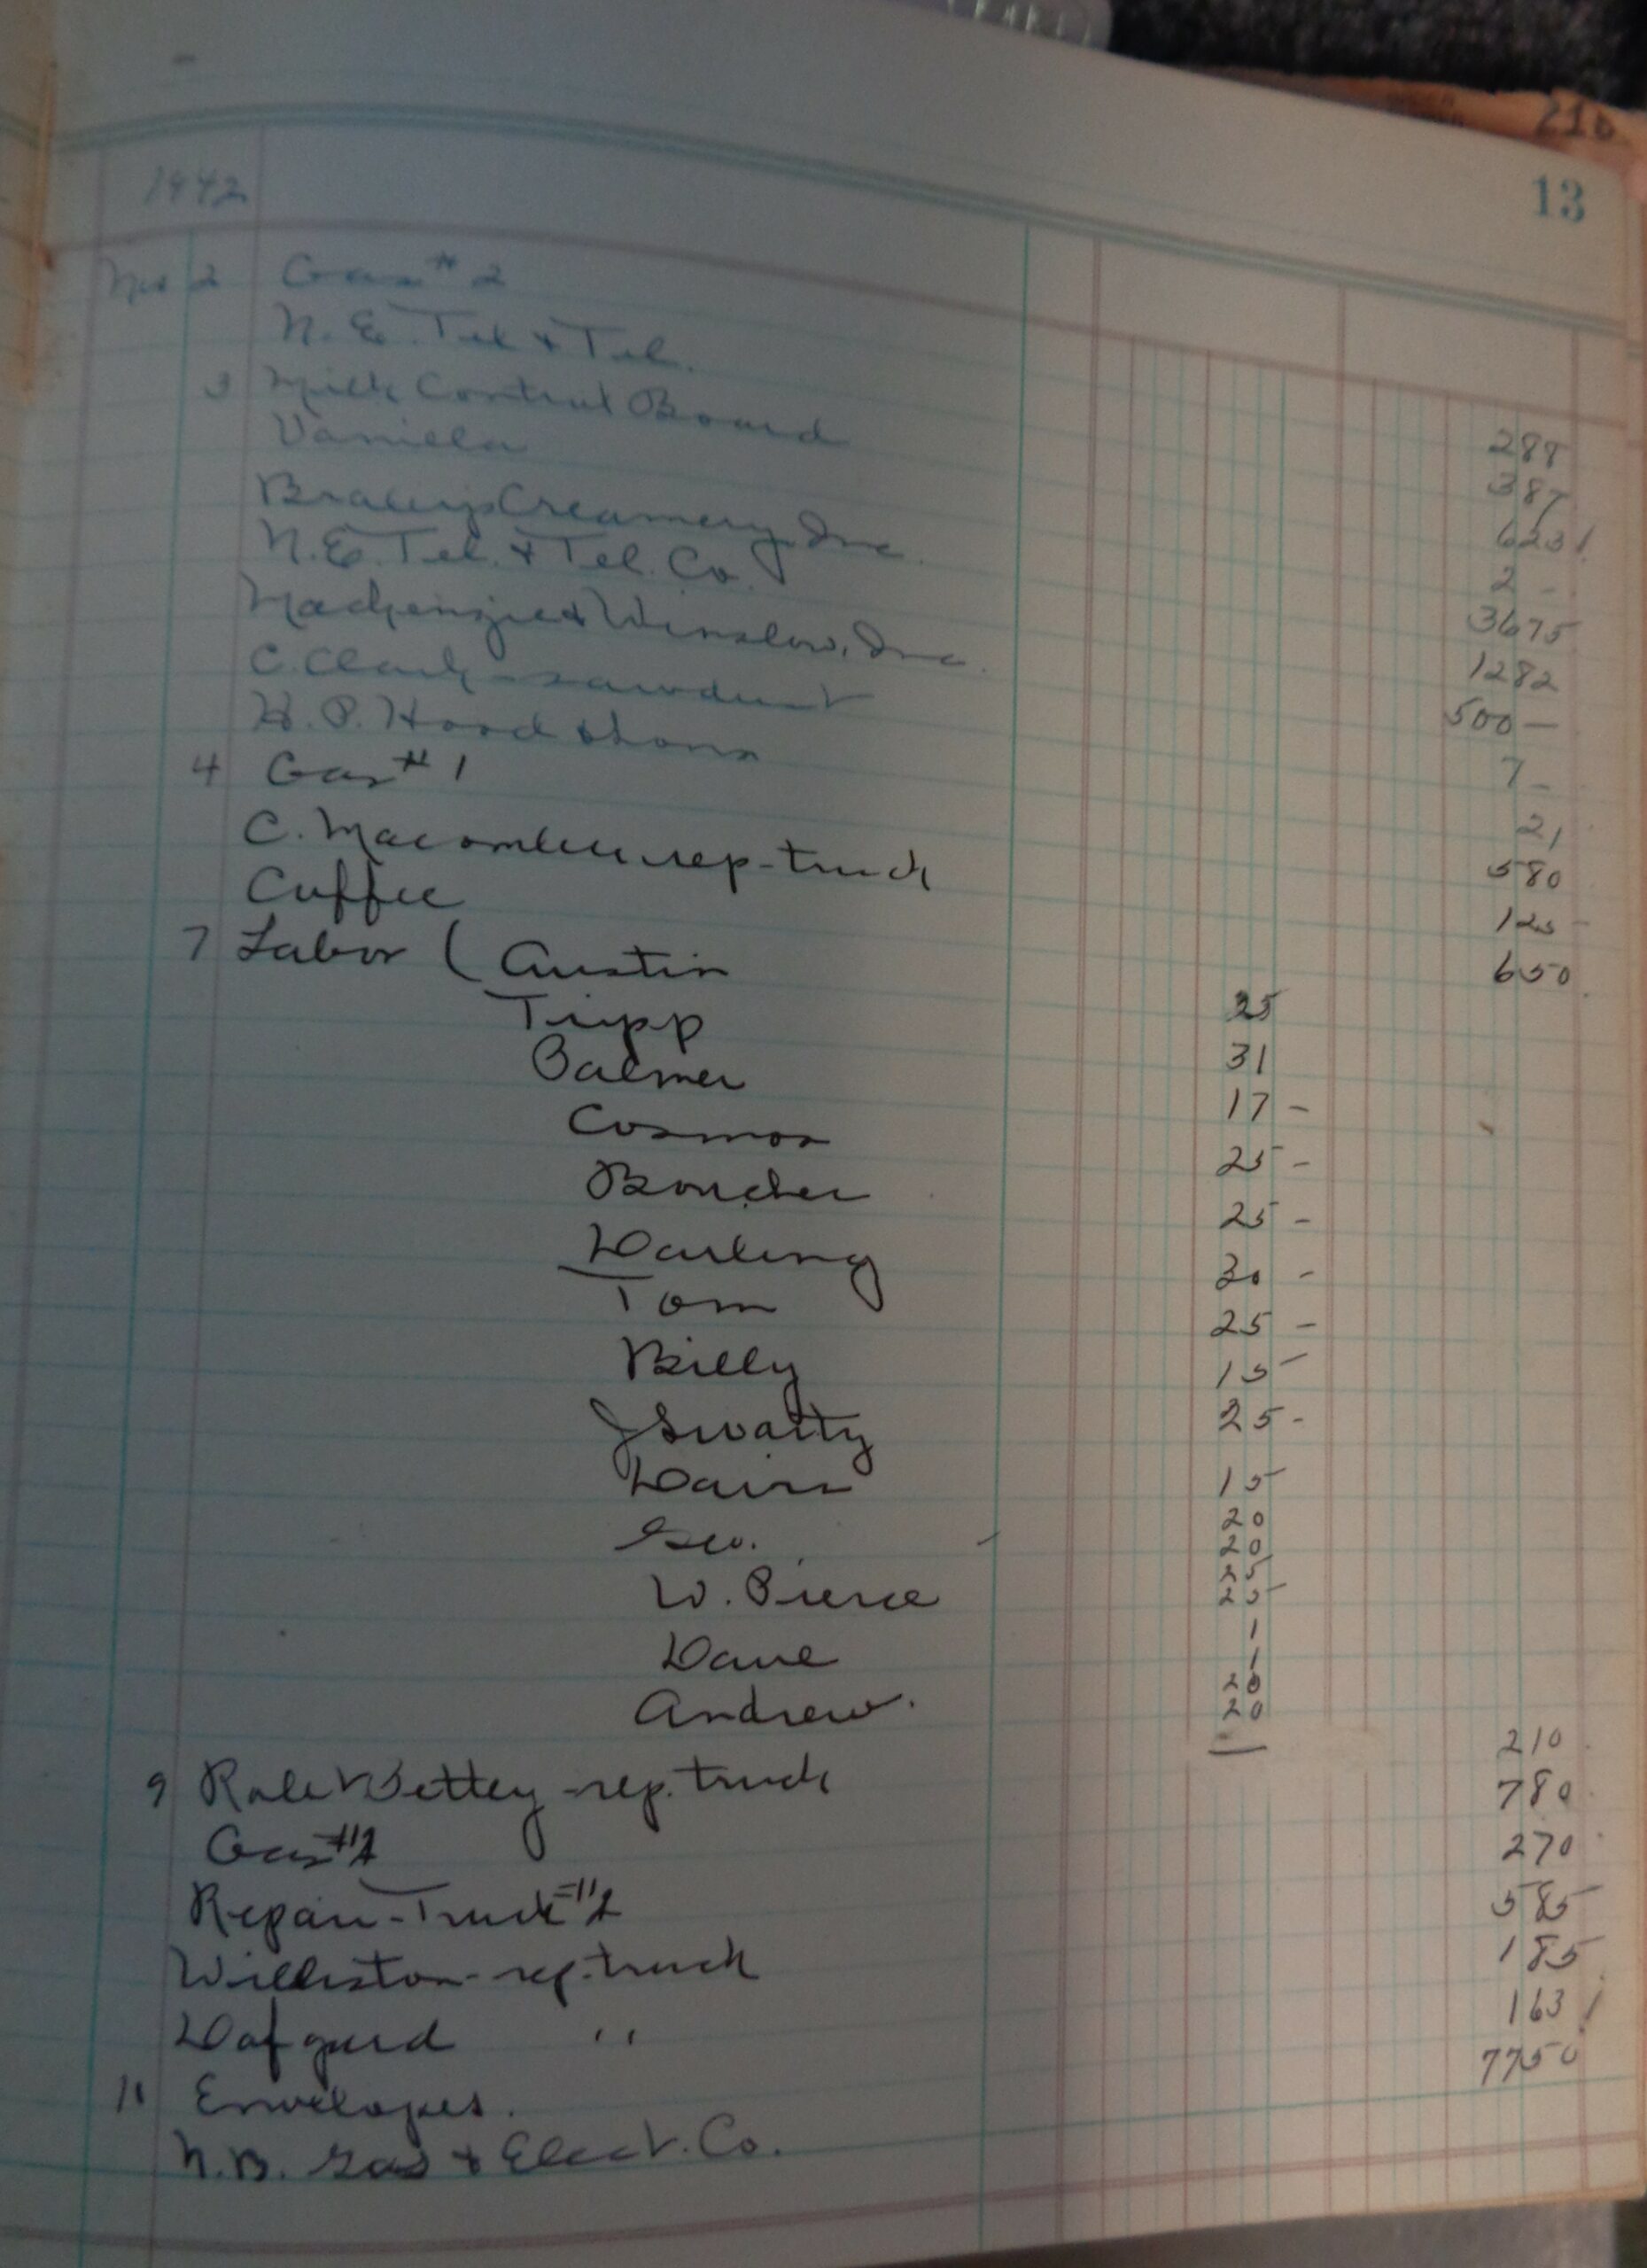 216
13
1942
2 Gas #2 288
N. E. Tel + Tel. 387
3 Milk Control Board 623
Vanilla 2 -
Braleys Creamery Inc. 3675
N.E. Tel. + Tel. Co. 1282
Mackenzie & Winslow, Inc. 500 —
C. Clark - sawdust 7 -
H. P. Hood & Sons 21
4 Gas #1 580
C. Macomber rep-truck 125
Cuffee 650
7 Labor ( Austin 25
Tripp 31
Palmer 17 -
Cosmos 25 -
Boucher 25 -
Darling 30 -
Tom 25 -
Billy 15
J Swarty 25 -
Davis 15
Geo. 20
20
W. Pierce 25
25
Dave 1
1
Andrew. 20
20
210
9 rep. truck 780
Gas #2 270
Repair-Truck #2 585
Williston - rep. truck 185
Dafgard " 163
11 Envelopes. 7750
N.B. Gas & Elect. Co.